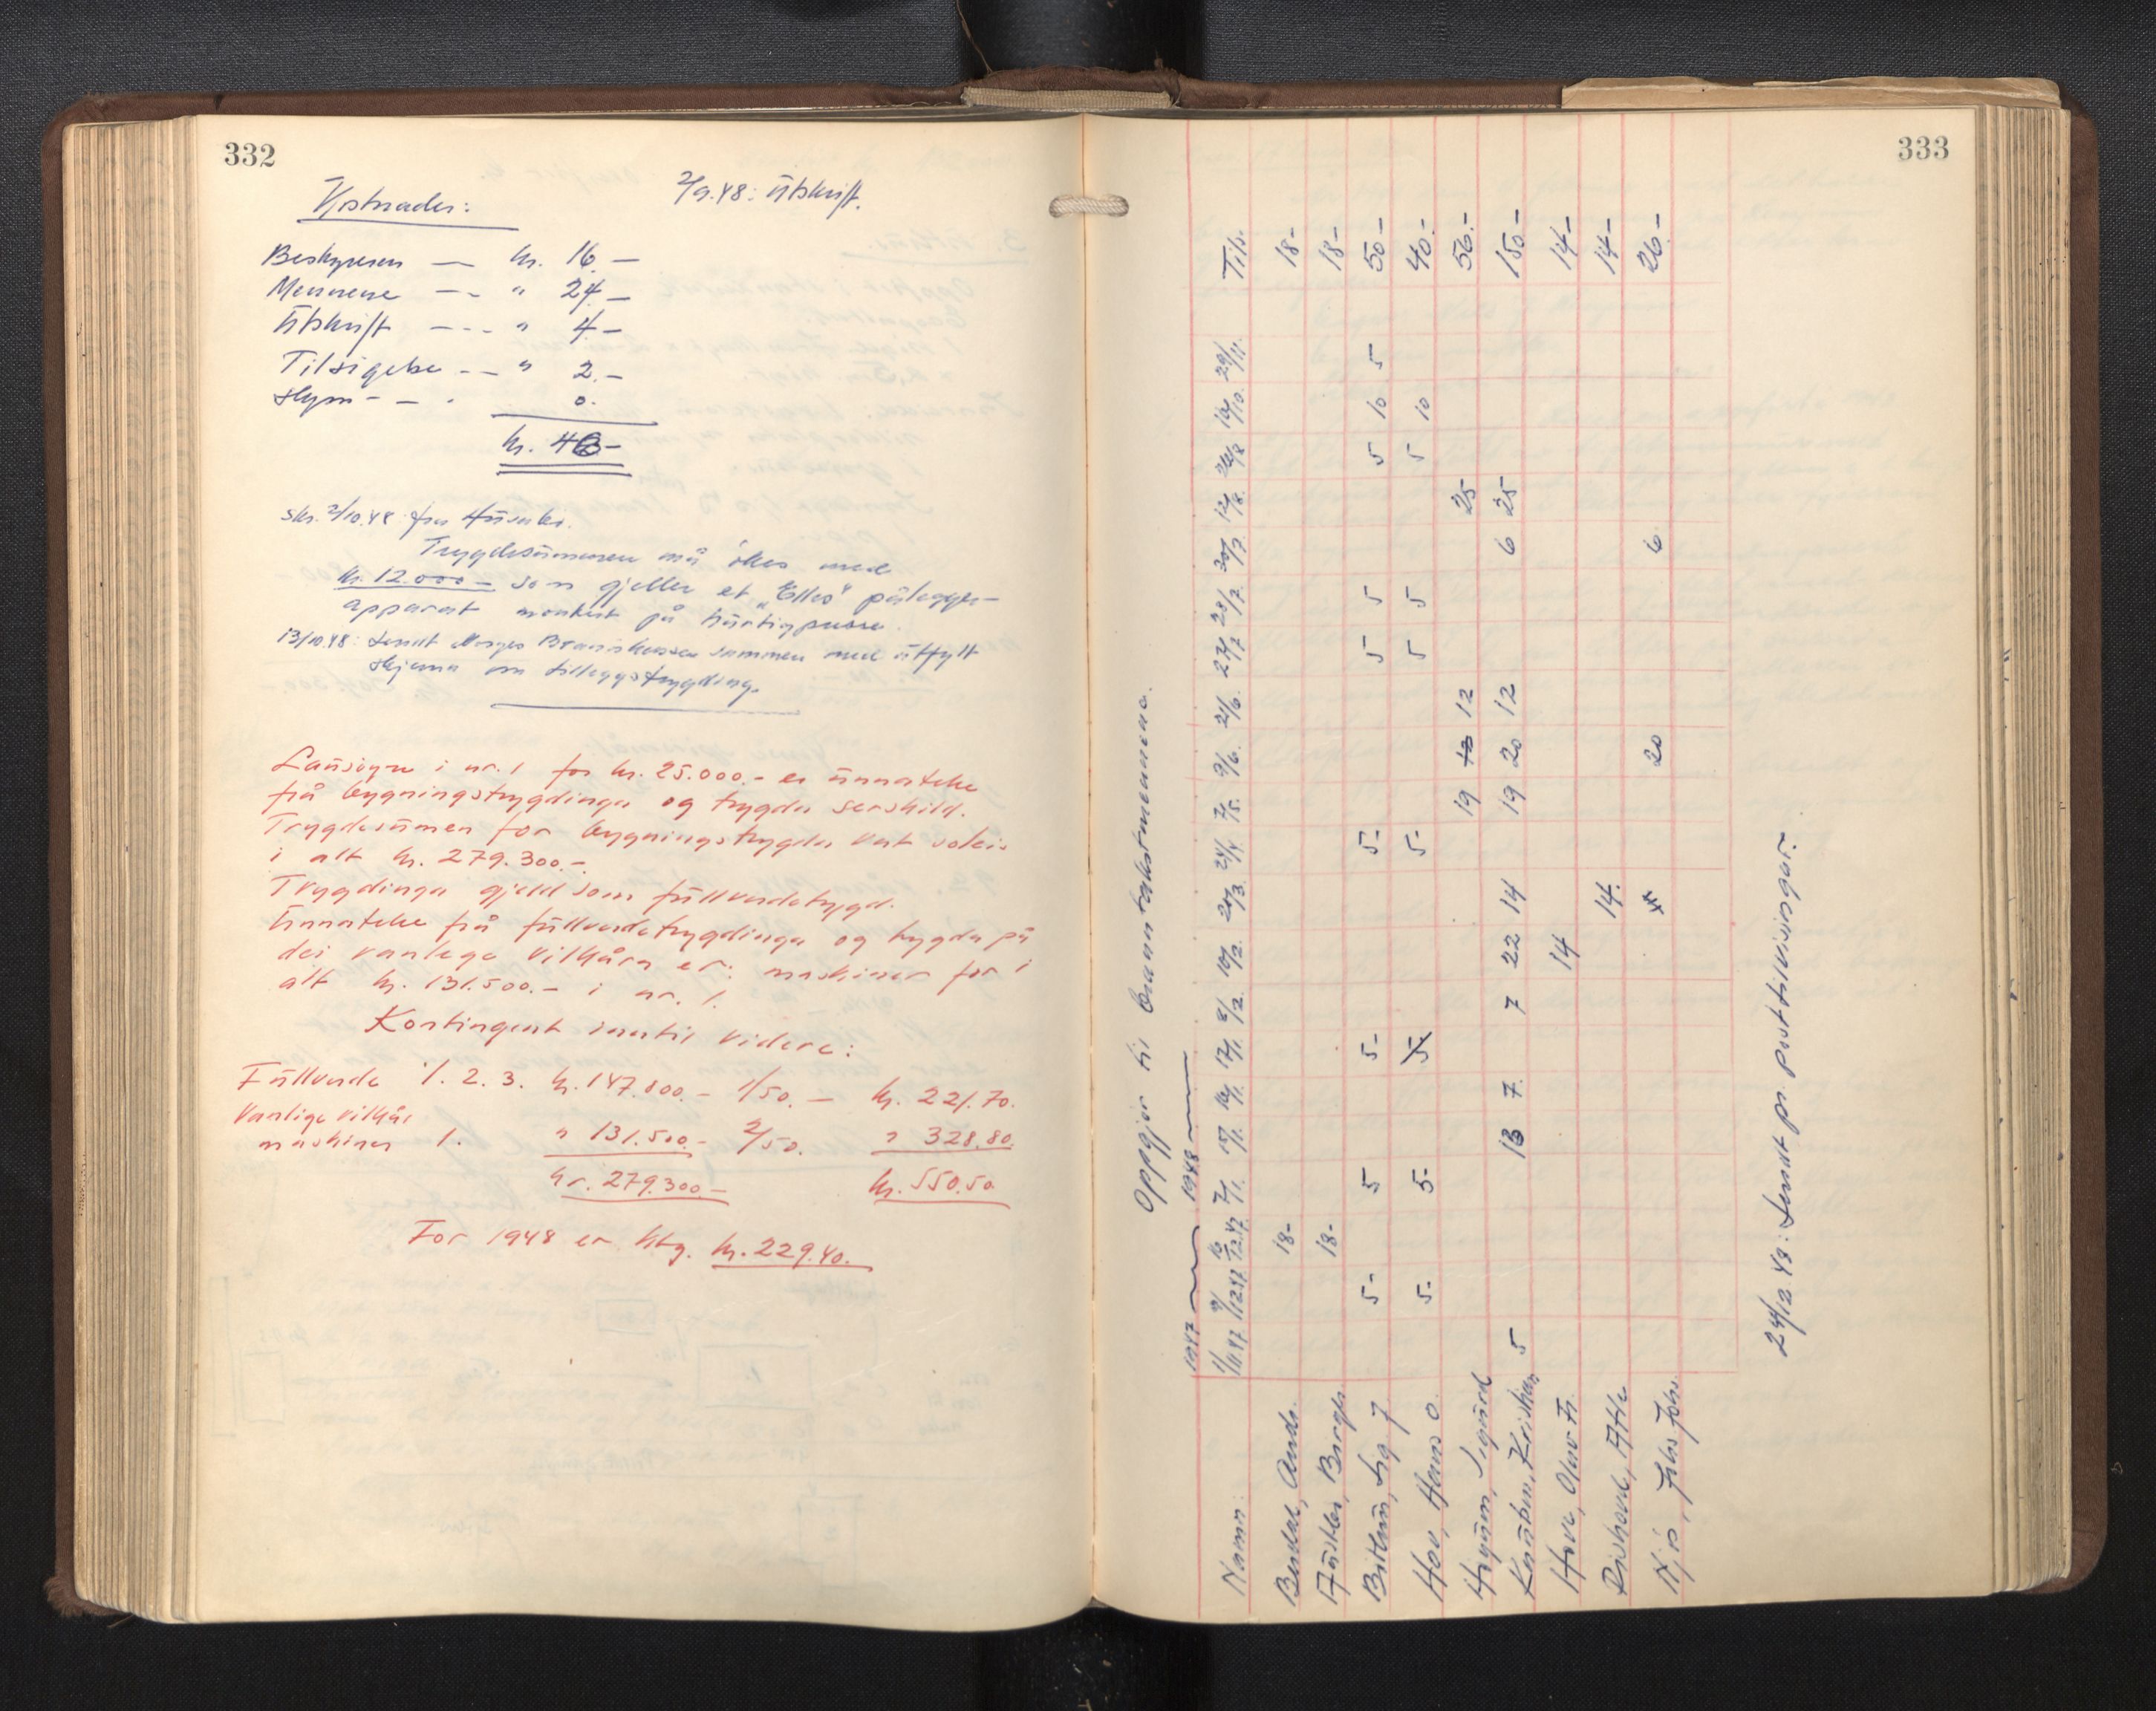 332
Kostnader:
2/9.48: Utskrift.
Bestyreren — kr. 16.—
Mennene — " 24.—
Utskrift — " 4.—
Tilsigelse — " 2.—
Skyss — 0.
kr. 46.—
Skr. 2/10.48 fra
Trygdesummen må økes med
kr. 12.000.— som gjeller et "Elko" pålegger-
apparat montert på hurtigpresse.
13/10.48: Sendt Norges Brannkasse sammen med utfyllt
skjema om tilleggstrygding.
Lausøyre i nr. 1 for kr. 25.000.- er unnateke
frå bygningstrygdinga og trygda serskild.
Trygdesumen for bygningstrygda vert soleis
i alt kr. 279.300.-
Trygdinga gjeld som fullverdetrygd.
Unnateke frå fullverdetrygdinga og trygda på
dei vanlege vilkåra er: maskiner for i
alt kr. 131.500.- i nr. 1.
Kontingent inntil videre:
Fullverde 1. 2. 3. kr. 147.800.- 1/50.— kr. 221.70.
Vanlige vilkår
maskiner 1. " 131.500.- 2/50. " 328.80.
kr. 279.300.— kr. 550.50
For 1948 er ktg. kr. 229.40.
333
Oppgjer til branntakstmennene.
1947 — 1948 —
Namn: 1/11.47 9/12.47 16/12.47 7/1. 15/1. 16/1. 17/1. 8/2. 10/2. 20/3. 24/4 7/5. 9/6. 21/6. 23/7 28/7. 30/7 12/8. 24/8 16/10. 29/11. Tils.
Berdal, Ands. 18- 18-
Bergh. 18- 18-
5- 5 5- 5- 5 5 5 10 5 50-
Hov, Hans O. 5- 5- 5- 5- 5 5 5 10 40.-
Sigurd 19 10 12 25 56.-
Knutsen, Kristian 5 13 7. 7 22 14 19 20 12 6 25 150-
Hove, Olav Fr. 14 14-
Atle 14. 14-
Johs. Johs. 4 20 6 26-
24/12.48: Sendt pr. posttilvisingar.